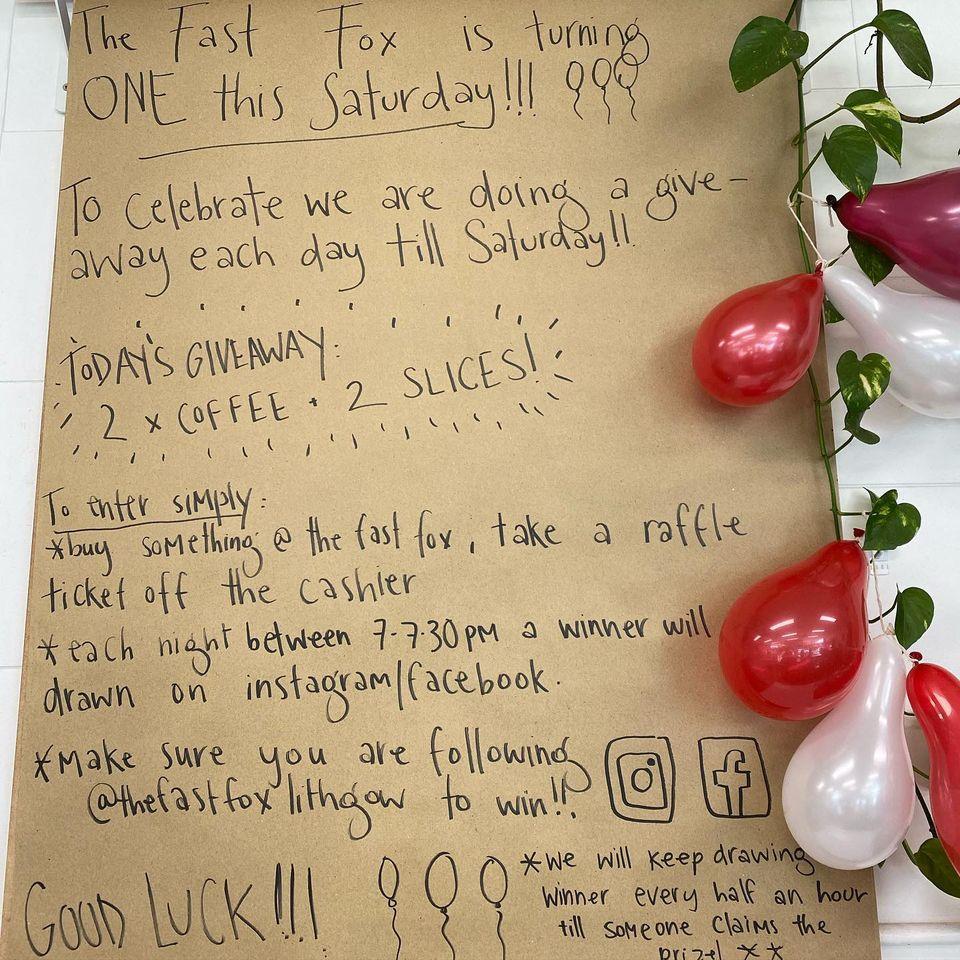 The Fast Fox is turning
ONE this Saturday!!!
To celebrate we are doing a give-
away each day till Saturday!!
TODAY'S GIVEAWAY:
2 x COFFEE + 2 SLICES!
To enter simply:
*buy something @ the fast fox, take a raffle
ticket off the cashier
*each night between 7-7.30pm a winner will
drawn on instagram/facebook.
*Make sure you are following
@thefastfoxlithgow to win!!
GOOD LUCK!!!
*we will keep drawing
winner every half an hour
till someone claims the
prize! **